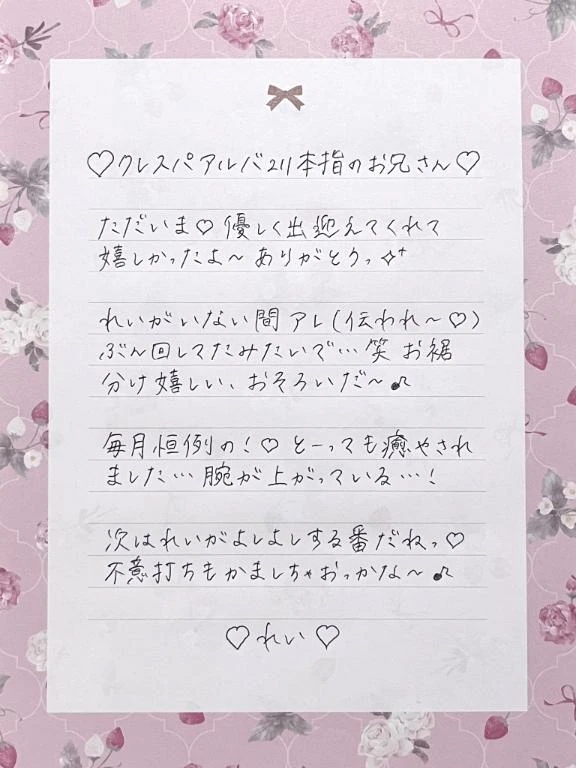 ♡クレスパアルバ211本指のお兄さん♡
ただいま♡優しく出迎えてくれて
嬉しかったよ〜ありがとうっ✧⁺
れいがいない間アレ(伝われ〜♡)
ぶん回してたみたいで…笑 お裾
分け嬉しい、おそろいだ〜♪
毎月恒例の!♡とーっても癒やされ
ました…腕が上がっている…!
次はれいがよしよしする番だねっ♡
不意打ちもかましちゃおっかな〜♪
♡れい♡